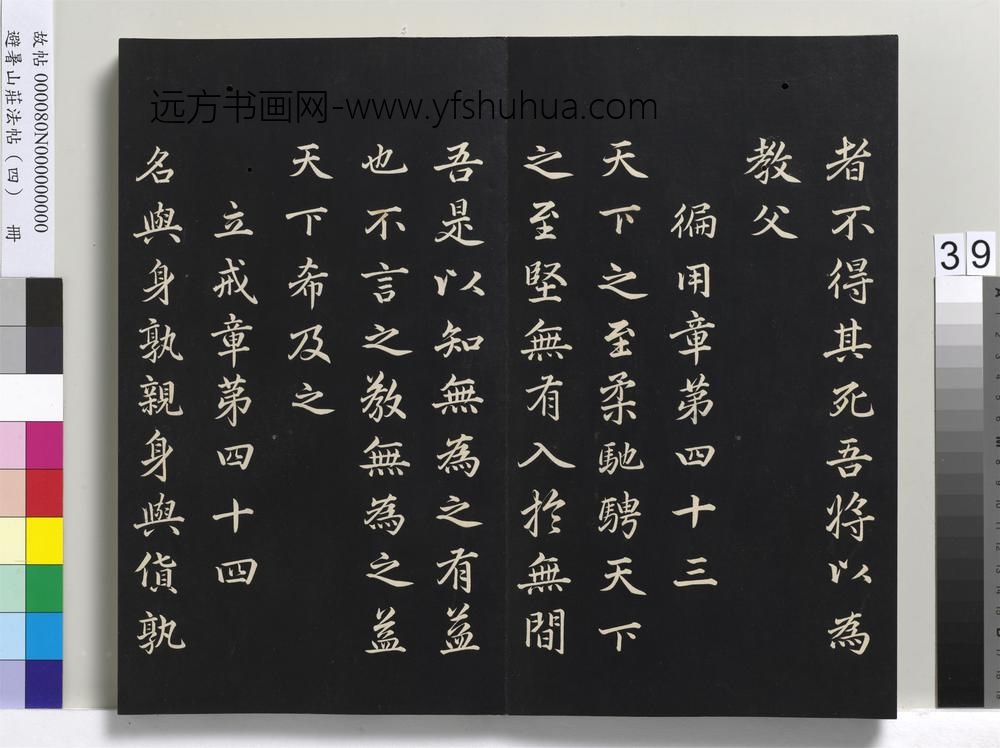 者不得其死吾将以為
教父
徧用章第四十三
天下之至柔馳騁天下
之至堅無有入扵無間
吾是以知無為之有益
也不言之教無為之益
天下希及之
立戒章第四十四
名與身孰親身與貨孰
远方书画网-www.yfshuhua.com
故帖 000080N000000000
避暑山莊法帖（四） 冊
39